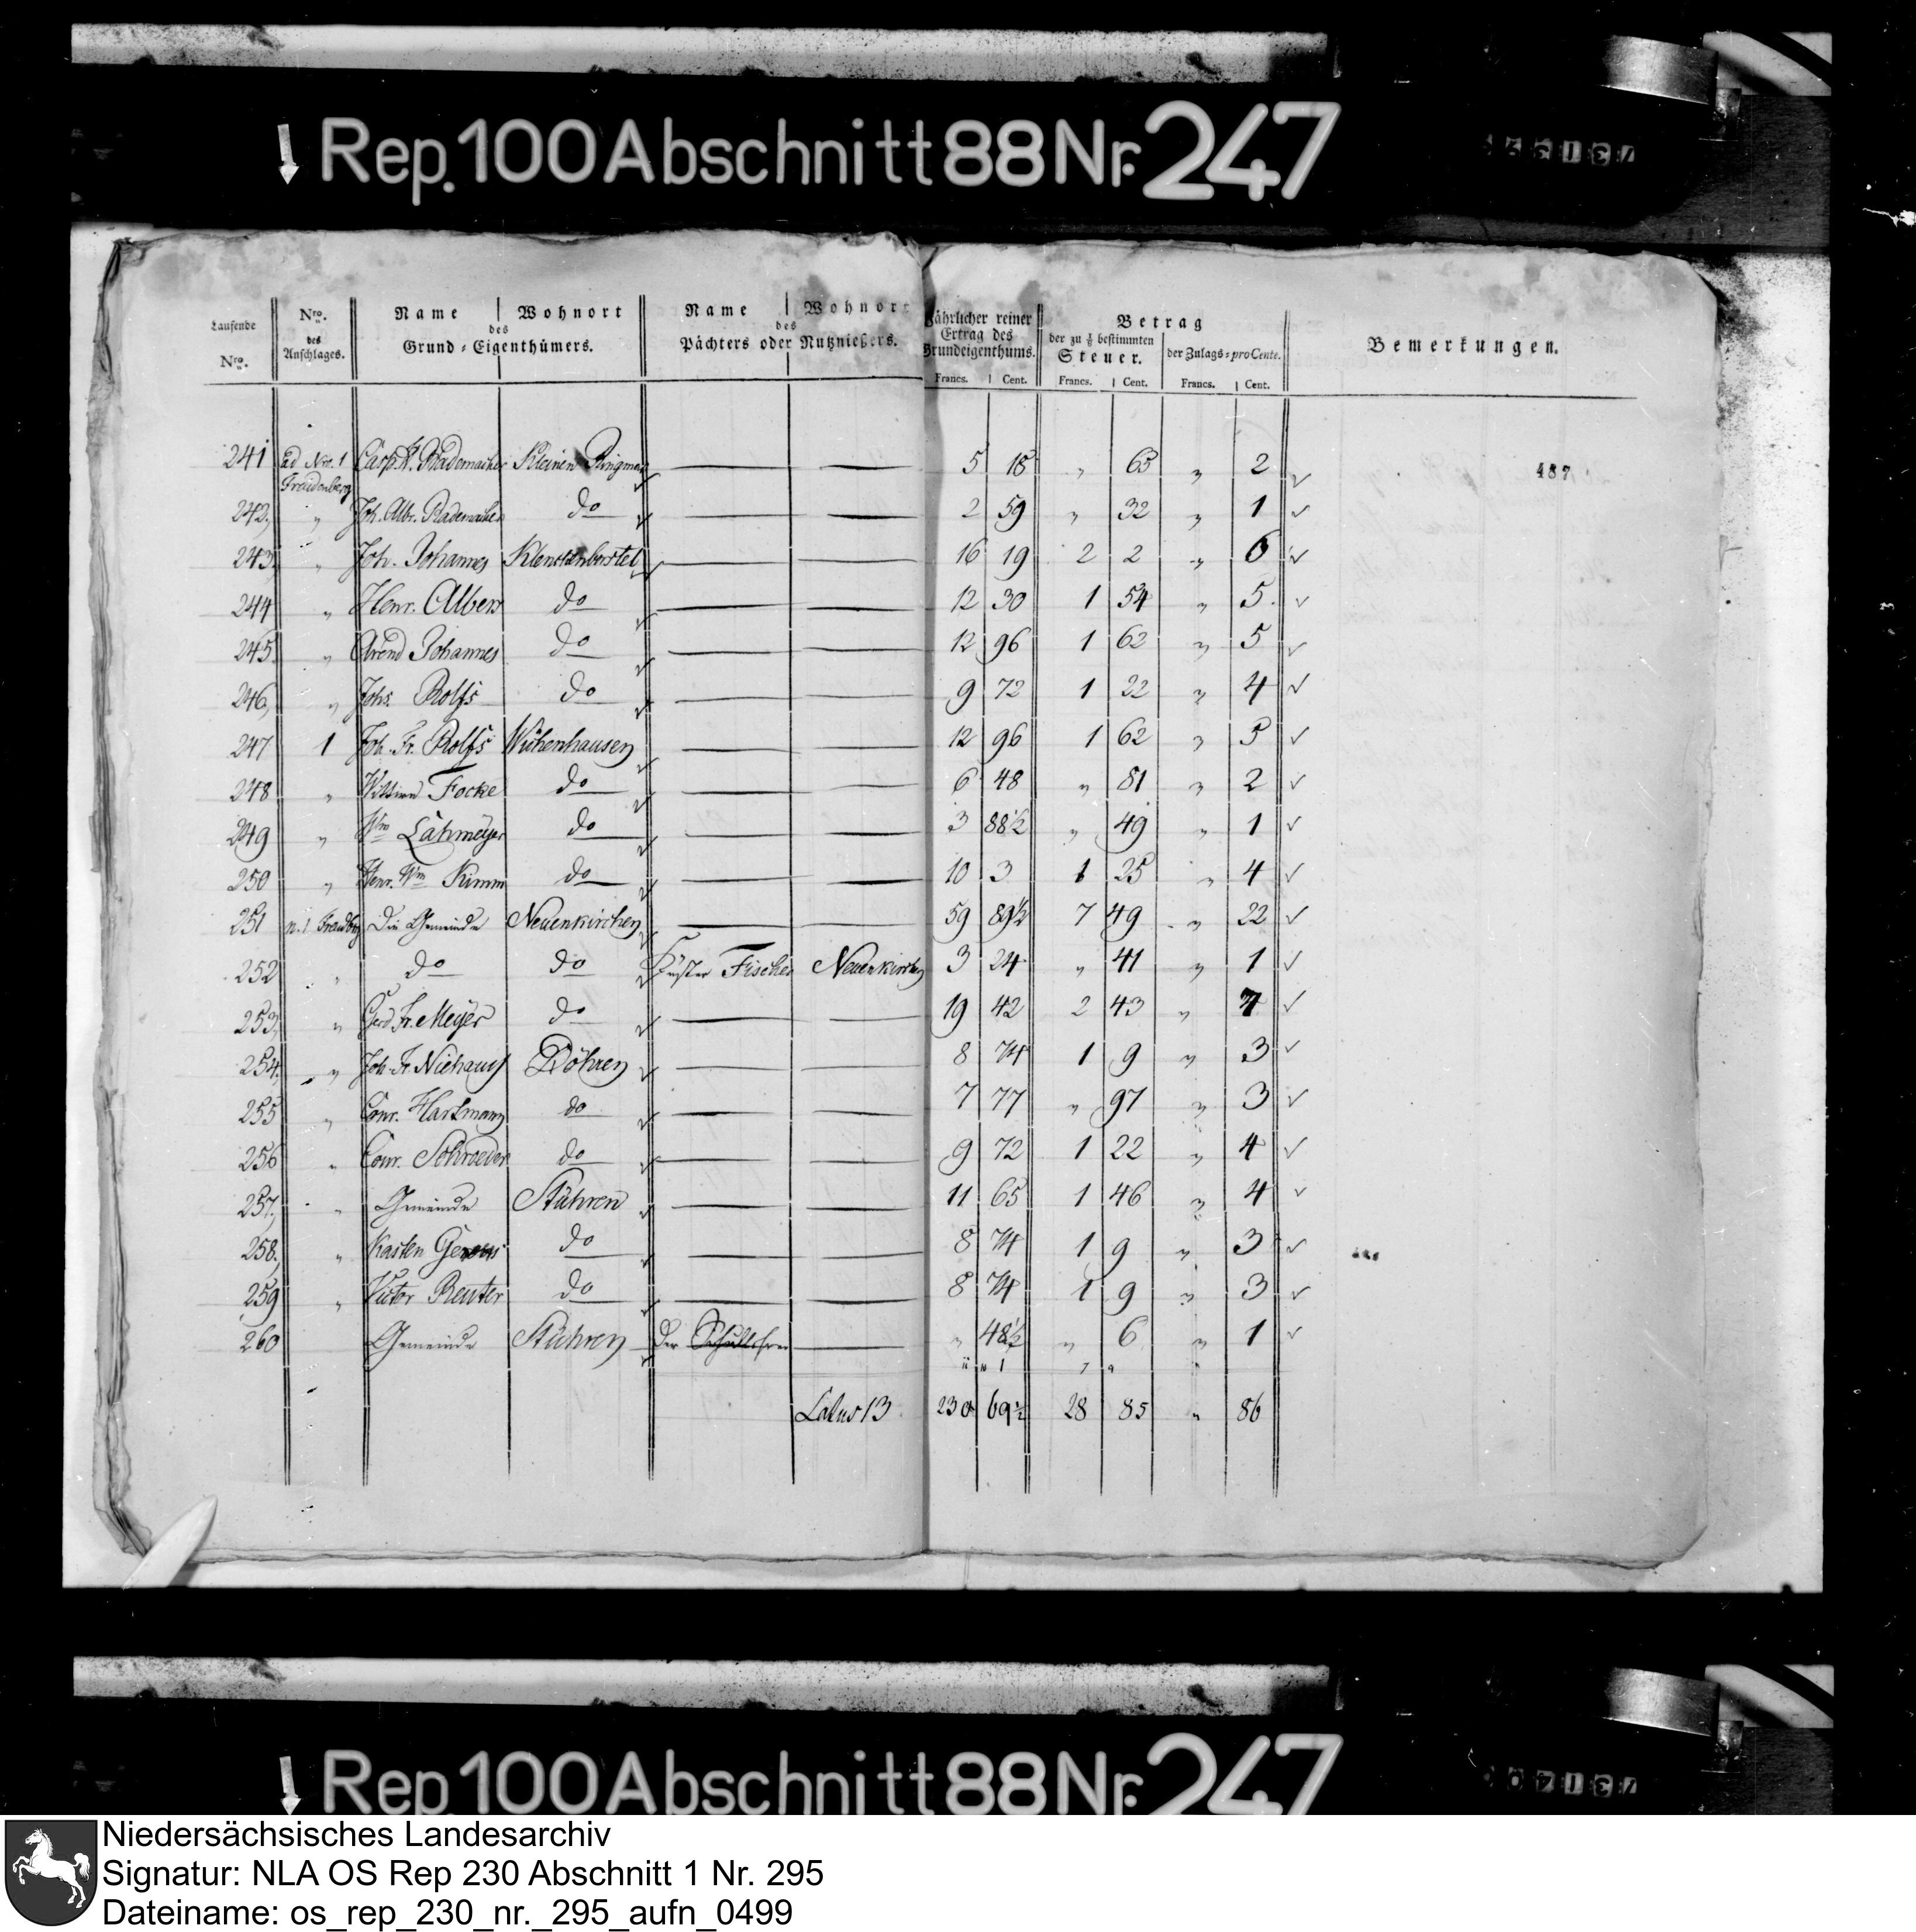 Rep. 100 Abschnitt 88 Nr. 247
Laufende Nro.
Nro. des Anschlages.
Name | Wohnort
des
Grund-Eigenthümers.
Name | Wohnort
des
Pächters oder Nutznießers.
Jährlicher reiner Ertrag des Grundeigenthums.
Francs. | Cent.
Betrag
der zu 1/8 bestimmten Steuer.
Francs. | Cent.
der Zulags-proCente.
Francs. | Cent.
Bemerkungen.
241 ad Nro. 1 Fraidenberg Casp. H. Rademacher Kleinen Ringmar — — 5 18 „ 65 „ 2
187
242, „ Joh. Albr. Rademacher do — — 2 59 „ 32 „ 1
243, „ Joh. Johannes Klenckenborstel — — 16 19 2 2 „ 6
244 „ Henr. Albers do — — 12 30 1 54 „ 5
245 „ Arend Johannes do — — 12 96 1 62 „ 5
246, „ Johs. Rolfs do — — 9 72 1 22 „ 4
247 1 Joh. Fr. Rolfs Wichenhausen — — 12 96 1 62 „ 5
248 „ Focke do — — 6 48 „ 81 „ 2
249 „ Wm Lahmeyer do — — 3 88½ „ 49 „ 1
250 „ Henr. Wm Kimm do — — 10 3 1 25 „ 4
251 n. 1 Fraudbg Die Gemeinde Neuenkirchen — — 59 89½ 7 49 „ 22
252 „ do do Küster Fischer Neuenkirchen 3 24 „ 41 „ 1
253, „ Gerd Fr. Meyer do — — 19 42 2 43 „ 7
254, „ Joh. Fr. Niehaus Döhren — — 8 74 1 9 „ 3
255 „ Conr. Hartmann do — — 7 77 „ 97 „ 3
256 „ Conr. Schroeder do — — 9 72 1 22 „ 4
257, „ Gemeinde Stühren — — 11 65 1 46 „ 4
258, „ Kasten do — — 8 74 1 9 „ 3
259 „ Victor Reuter do — — 8 74 1 9 „ 3
260 Gemeinde Stühren Der — „ 48½ „ 6 „ 1
Latus 13 230 69½ 28 85 „ 86
Rep. 100 Abschnitt 88 Nr. 247
Niedersächsisches Landesarchiv
Signatur: NLA OS Rep 230 Abschnitt 1 Nr. 295
Dateiname: os_rep_230_nr._295_aufn_0499